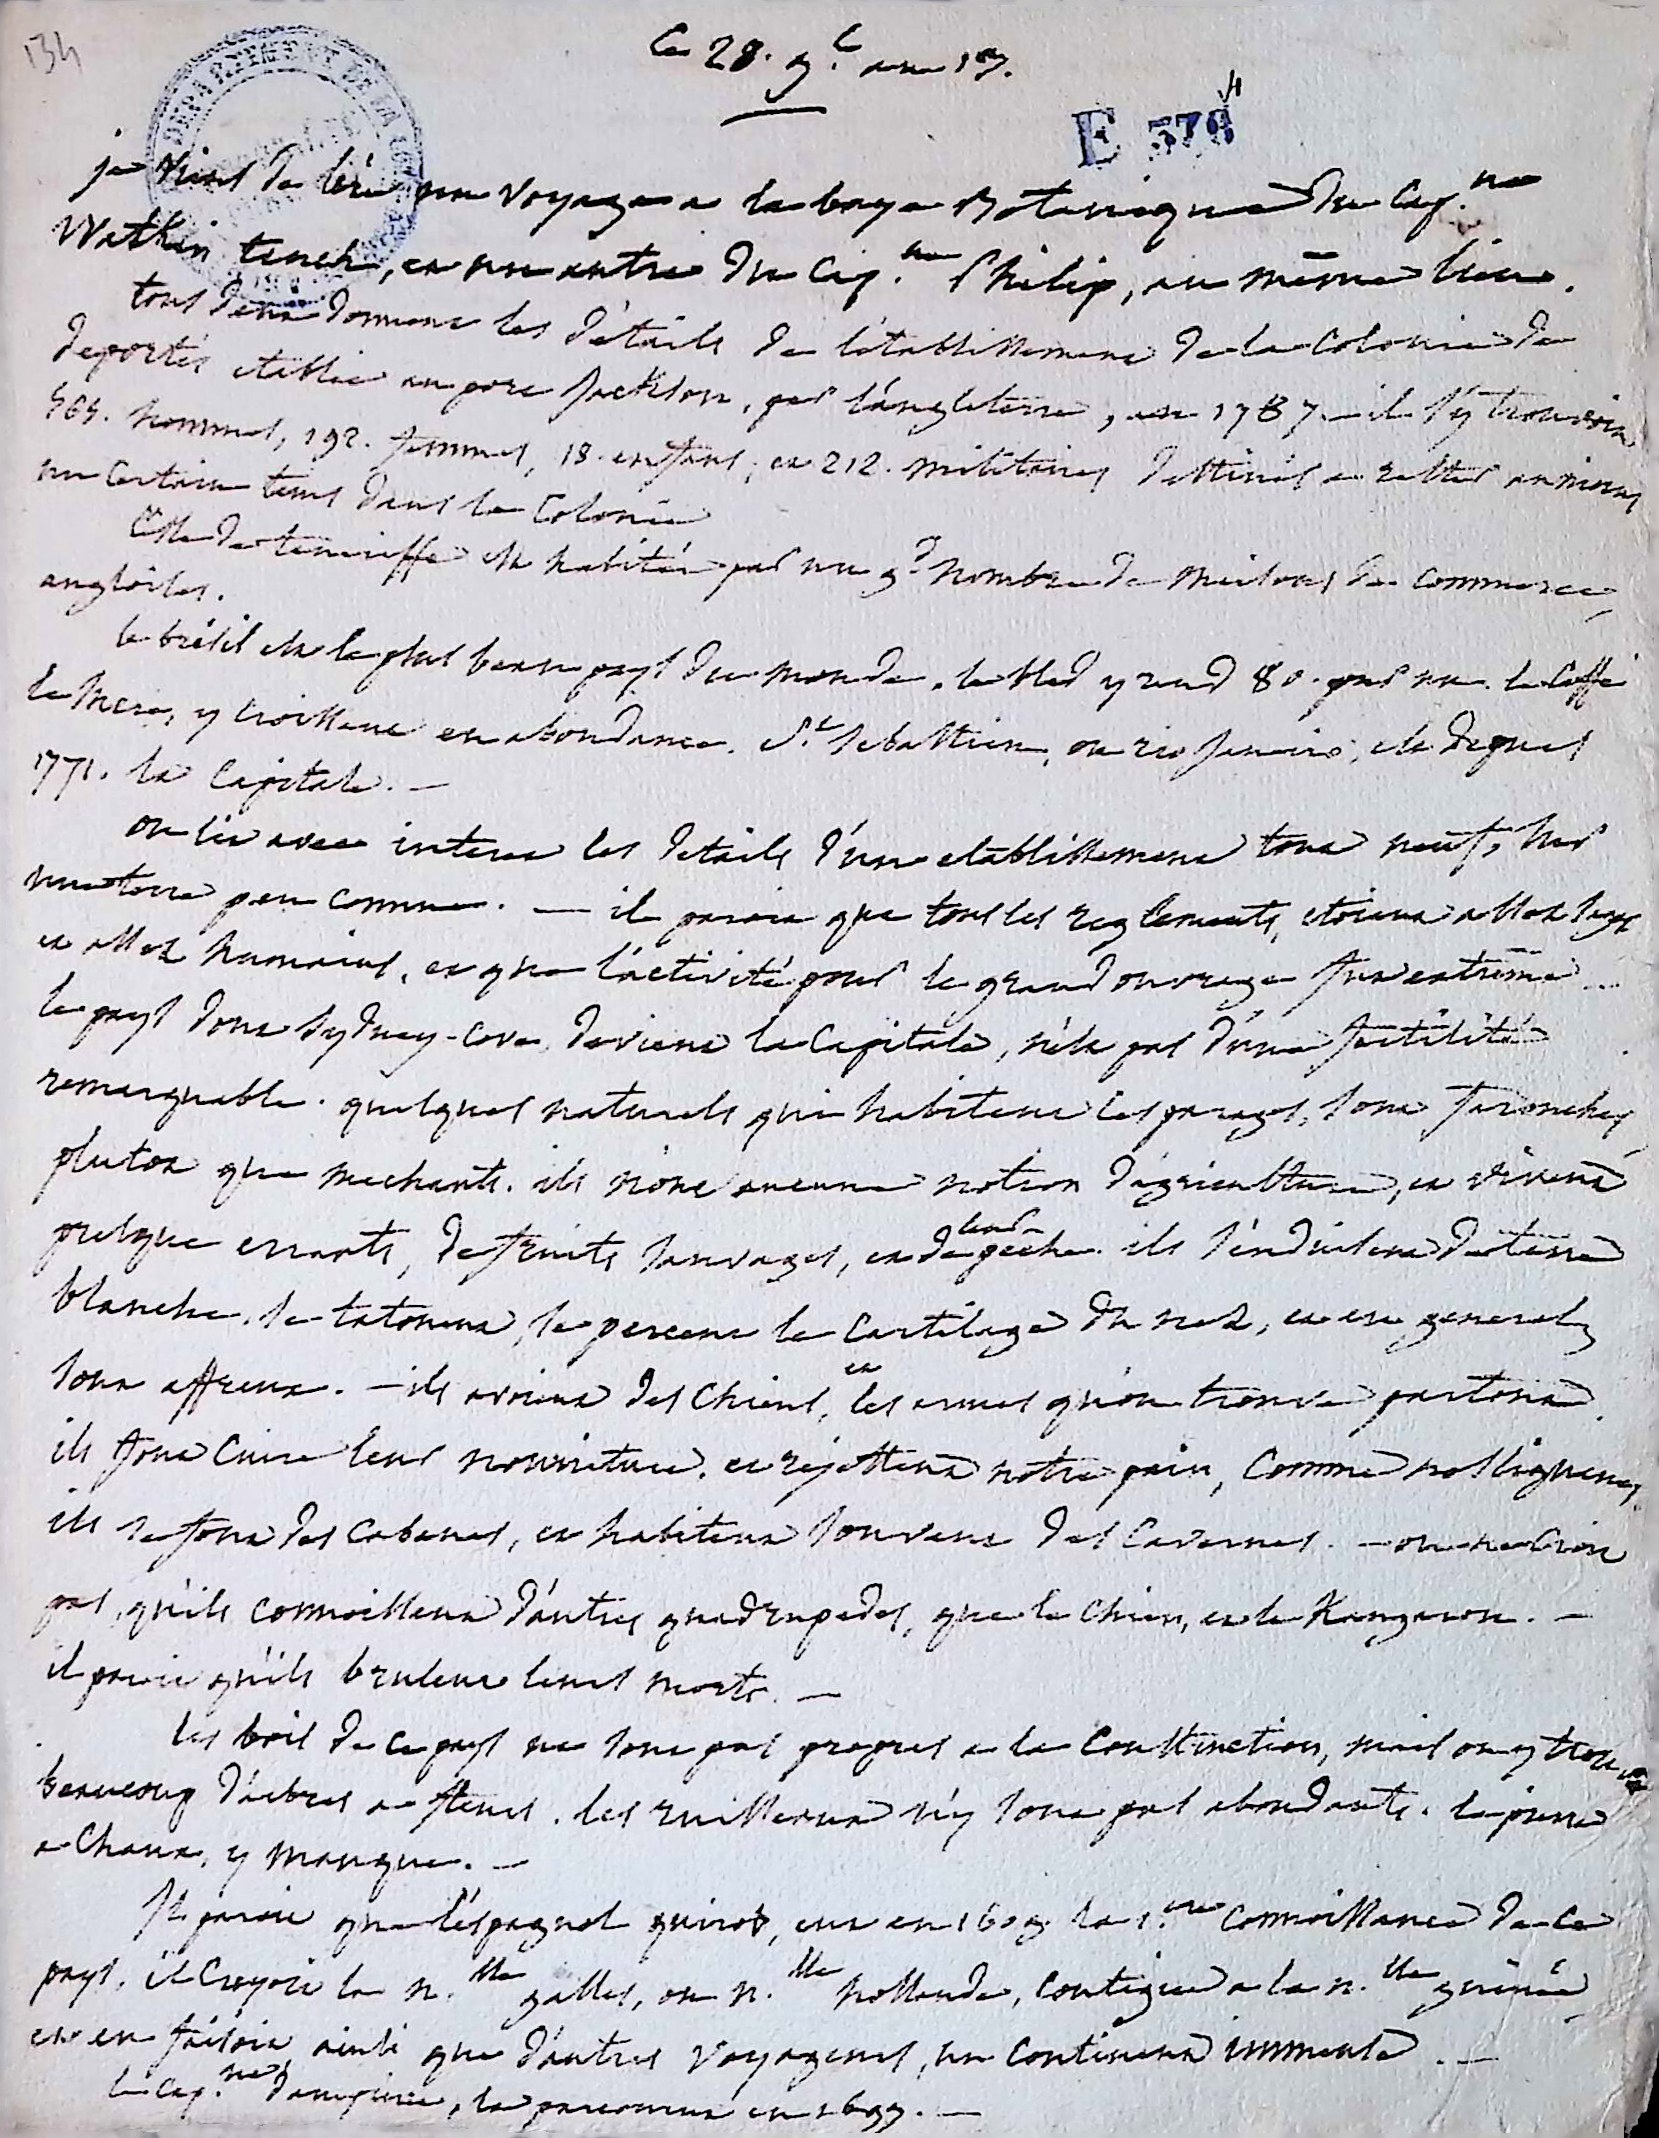 134
Ce 28. 9.e an 1er.
E 376 4
DEPARTEMENT DE LA CO
je viens de lire un voyage a la baye Botanique du Cap.ne
Watkin tench, et un autre du Cap.ne Philip, au même lieu.
tous deux donnent les détails de l'établissement de la Colonie de
deportés etablie au port Jackson, par l'angleterre, en 1787. — il s'y trouvoit
565. hommes, 192. femmes, 18. enfans, et 212. militaires destinés a rester au moins
un certain tems dans la Colonie
l'isle de teneriffe est habitée par un gd nombre de maisons de commerce
angloises.
le brésil est le plus beau pays du monde. le bled y rend 80. pour un. le Caffé
le , y croissent en abondance. St. sebastien, ou rio Janeiro, est depuis
1771. la Capitale. —
on lit avec interet les details d'un etablissement tout neuf, sur
une terre peu connue. — il paroit que tous les reglements, etoient assez sages
et assez humains, et que l'activité pour le grand ouvrage fut extrême ...
le pays dont sydney-cove, devient la Capitale, n'est pas d'une fertilité
remarquable. quelques naturels qui habitent ces parages, sont farouches
plutot que mechants. ils n'ont aucune notion d'agriculture, et vivent
presque errants, de fruits sauvages, et de leur pêche. ils s'enduisent de terre
blanche, se tatouent, se percent le Cartilage du nez, et en general
sont affreux. — ils avoient des Chiens, et les armes qu'on trouve partout
ils font cuire leur nourriture. et rejettent notre pain, comme nos liqueurs.
ils se font des Cabanes, et habitent souvent des Cavernes. — on ne croit
pas, qu'ils connoissent d'autres quadrupedes, que le chien, et le Kanguroo. —
il paroit qu'ils brulent leurs morts. —
les bois de ce pays ne sont pas propres a la construction, mais on y trouve
beaucoup d'arbres a fleurs. les ruisseaux n'y sont pas abondants. la pierre
a Chaux, y manque. —
Il paroit que l'espagnol quiros, eut en 1609 la 1.ere connoissance de ce
pays. il croyoit la n.lle galles, ou n.lle hollande, contigue a la n.lle guinée
et en faisoit ainsi que d'autres voyageurs, un continent immense. —
le Cap.ne dampierre, la parcourut en 1699. —